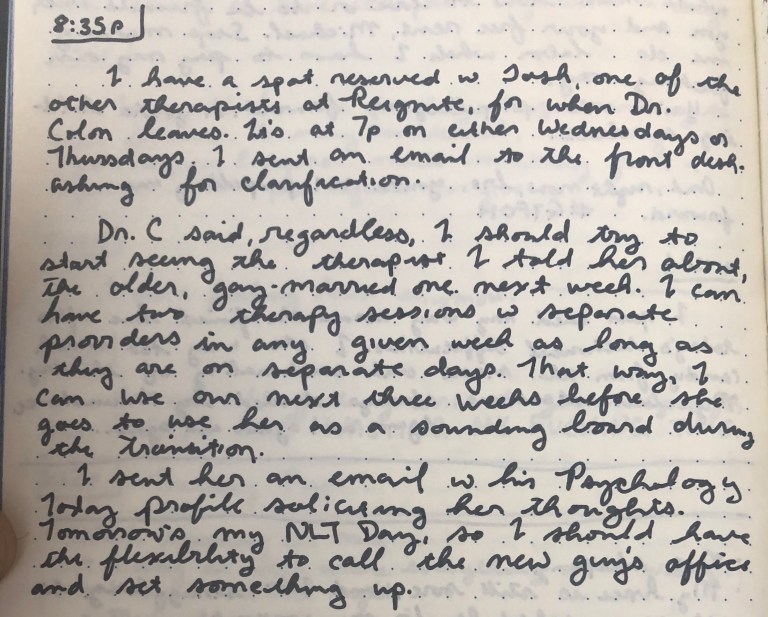 8:35p
I have a spot reserved w Josh, one of the
other therapists at Reignite, for when Dr.
Colon leaves. It's at 7p on either Wednesdays or
Thursdays. I sent an email to the front desk
asking for clarification.
Dr. C said, regardless, I should try to
start seeing the therapist I told her about,
the older, gay-married one next week. I can
have two therapy sessions w separate
providers in any given week as long as
they are on separate days. That way, I
can use our next three weeks before she
goes to use her as a sounding board during
the transition.
I sent her an email w his Psychology
Today profile soliciting her thoughts.
Tomorrow's my NLT Day, so I should have
the flexibility to call the new guy's office
and set something up.